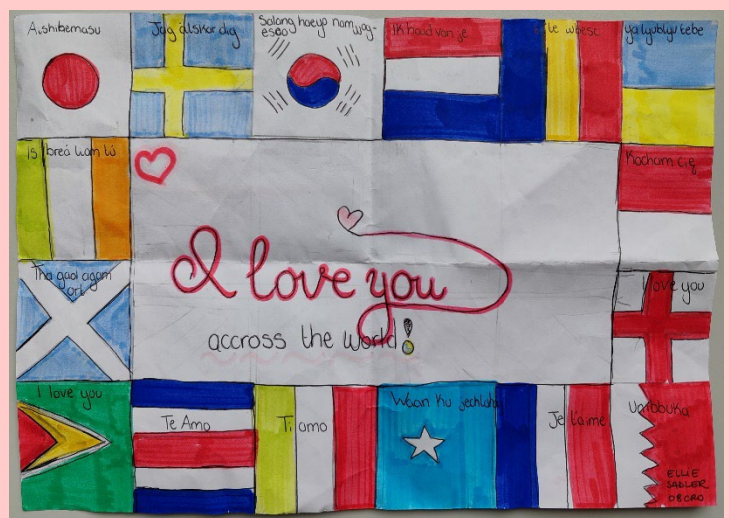 Aishitemasu
Jag älskar dig
Salang haeyo namuog-
eseo
Ik houd van je
te iubesc
ya lyublyu tebe
Is breá liom tú
Kocham Cię
Tha gaol agam
ort
I love you
I love you
accross the world!
I love you
Te Amo
Ti amo
Waan Ku jeclahay
Je t'aime
Uhibbuka
ELLIE
SADLER